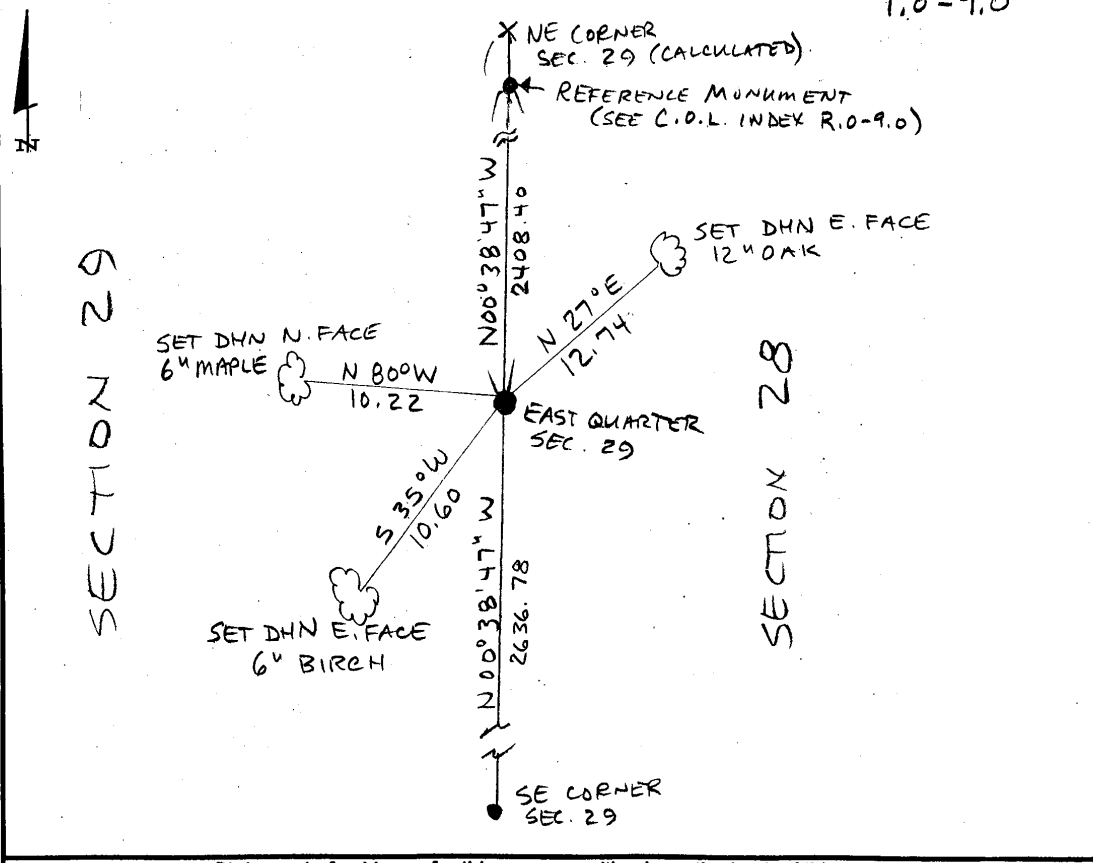 NE CORNER
SEC. 29 (CALCULATED)
REFERENCE MONUMENT
(SEE C.O.L. INDEX R.0-9.0)
N
N00°38'47"W
2408.40
SET DHN E. FACE
12" OAK
N 27°E
12.74
SECTION 29
SET DHN N. FACE
6" MAPLE
N 80°W
10.22
EAST QUARTER
SEC. 29
SECTION 28
S 35°W
10.60
N00°38'47"W
2636.78
SET DHN E. FACE
6" BIRCH
SE CORNER
SEC. 29